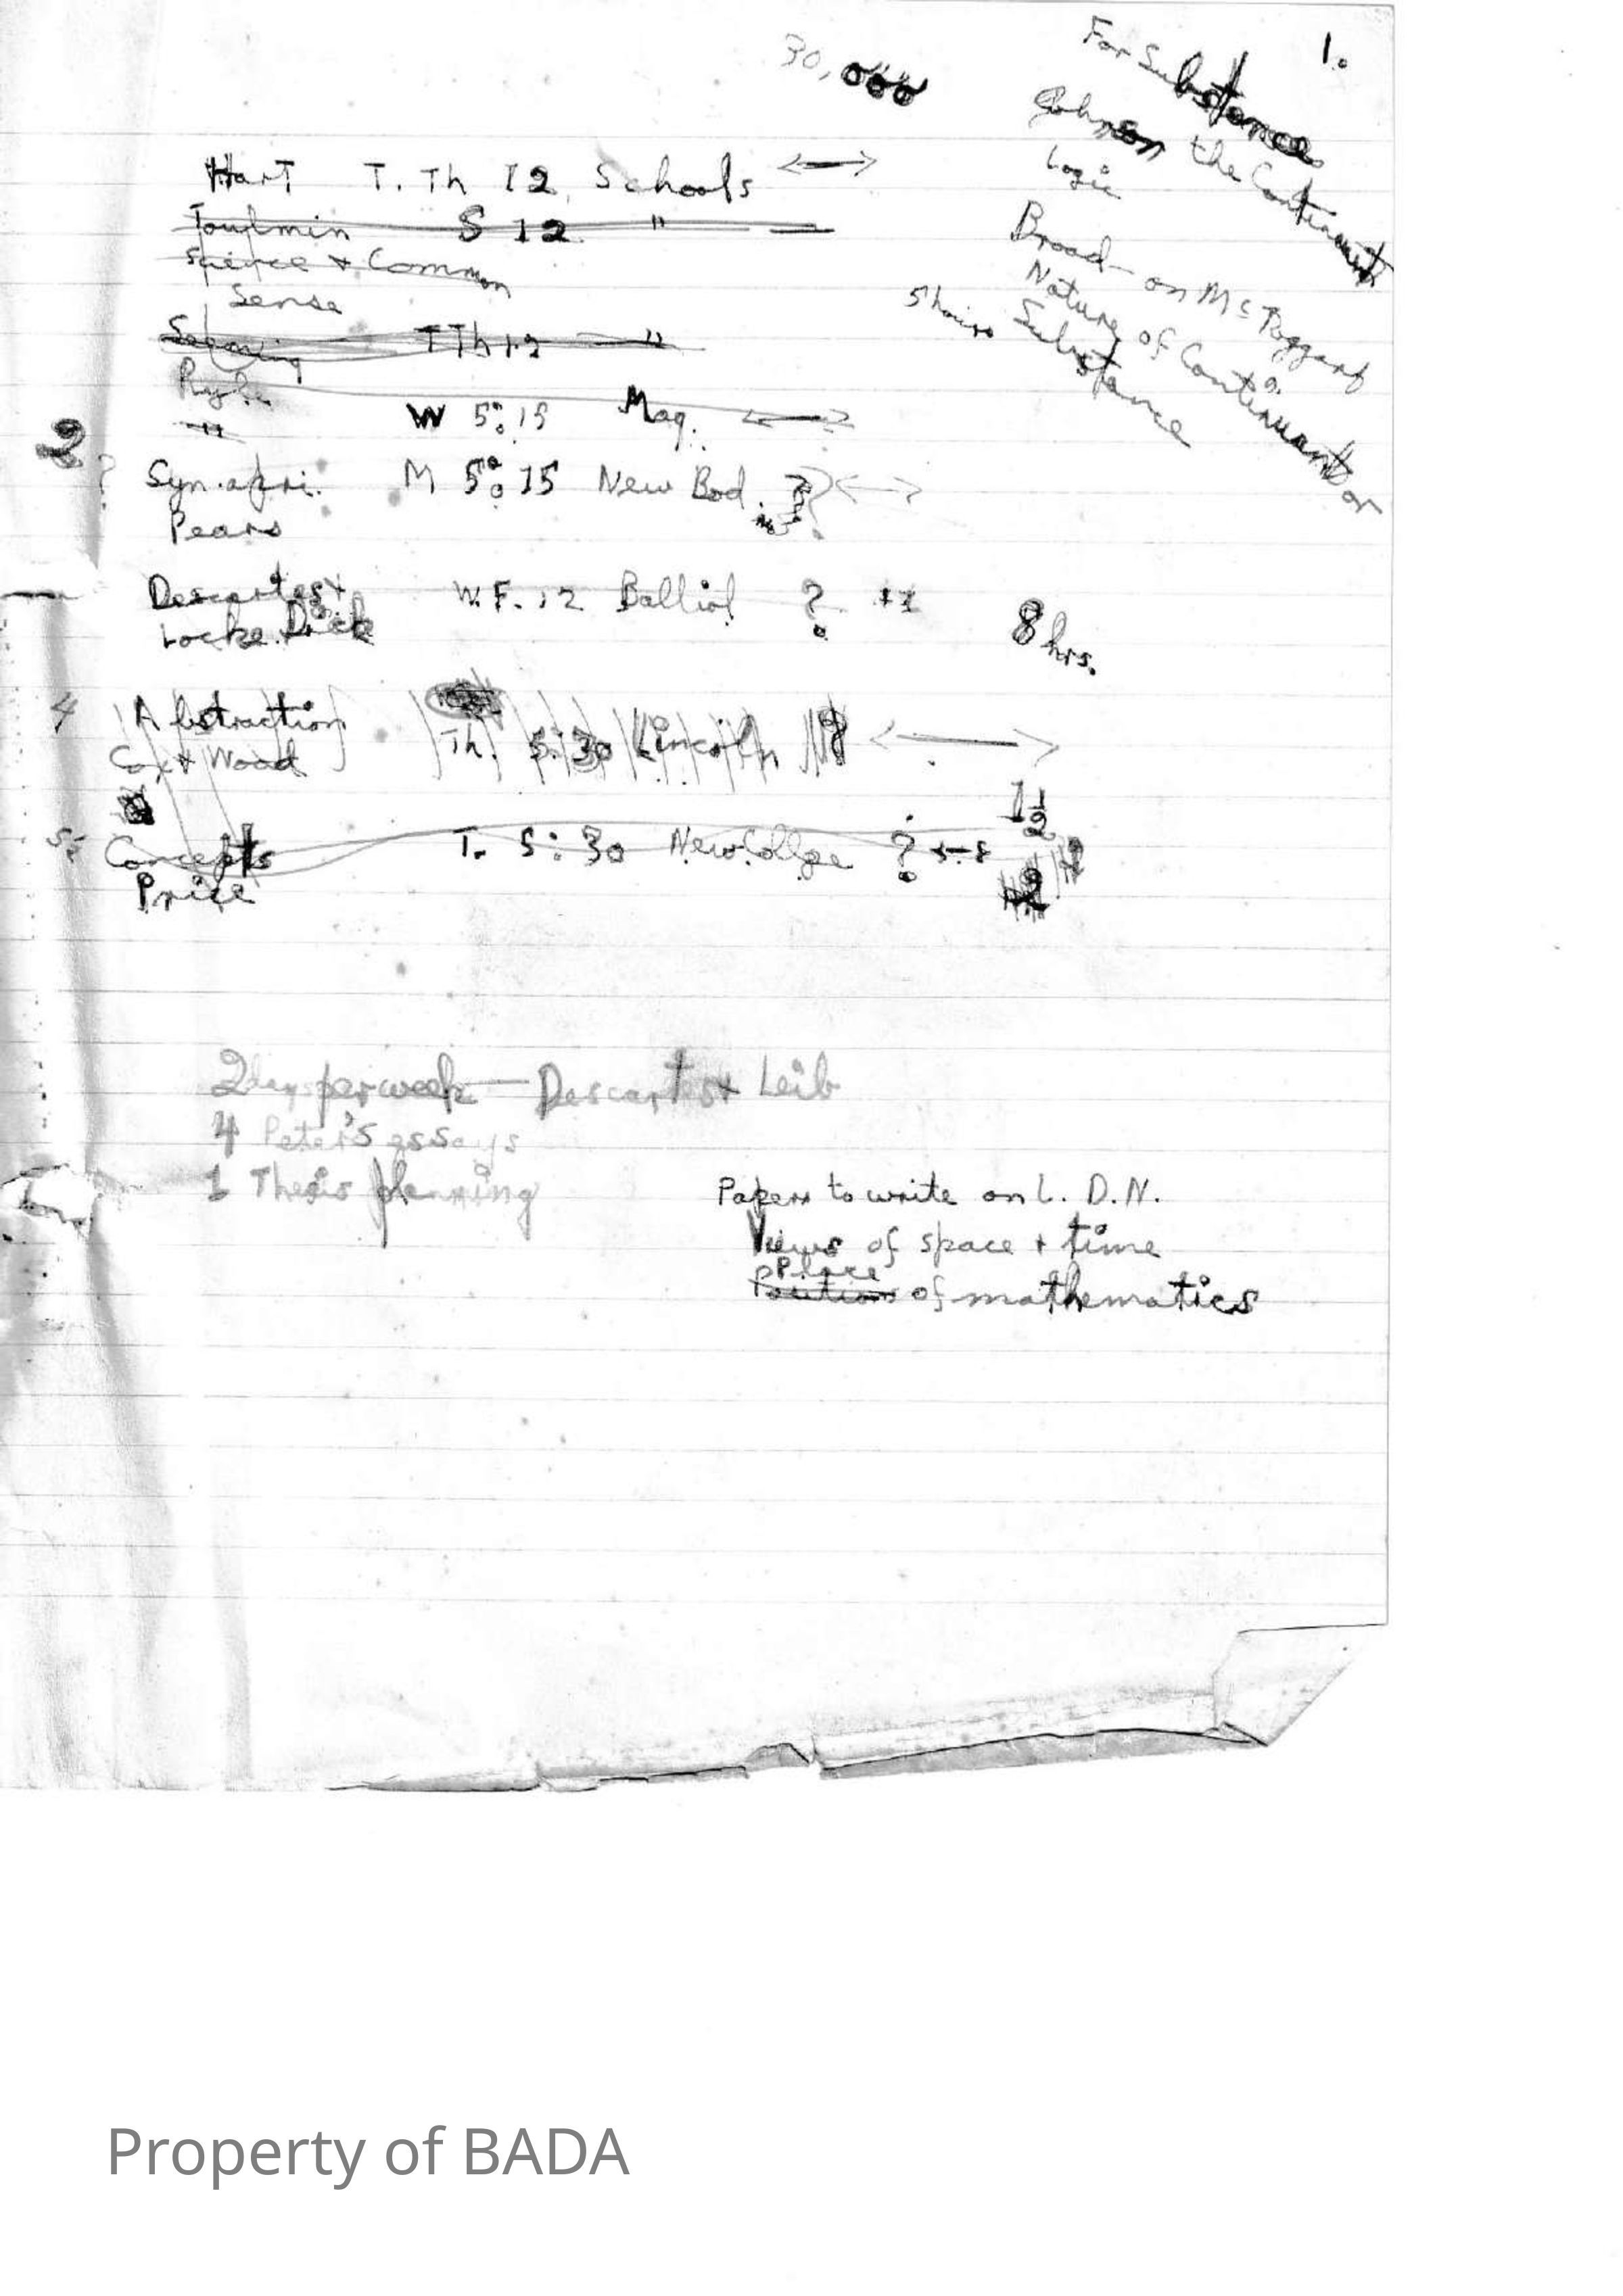 1.
30,000
For Substance
Johnson the Continuant
Logic
Broad - on McTaggart
Nature of Continuant or
Substance
5 hours
Hart T. Th 12 Schools ⟷
Toulmin S 12 " —
Science + Common
Sense
T Th 12 — "
Ryle
" W 5:15 Mag. ⟷
2 ? Syn. apri. M 5:15 New Bod. ? ⟷
Pears
Descartes + W. F. 12 Balliol ?
Locke Dick
8 hrs.
4 Abstraction
Cox + Wood Th. 5:30 Lincoln ⟷
1 1/2
5 Concepts T. 5:30 New Collge ?
Price
2
2 days per week — Descartes + Leib
4 Peter's essays
1 Thesis planning
Papers to write on L. D. N.
Views of space + time
Place
Position of mathematics
Property of BADA